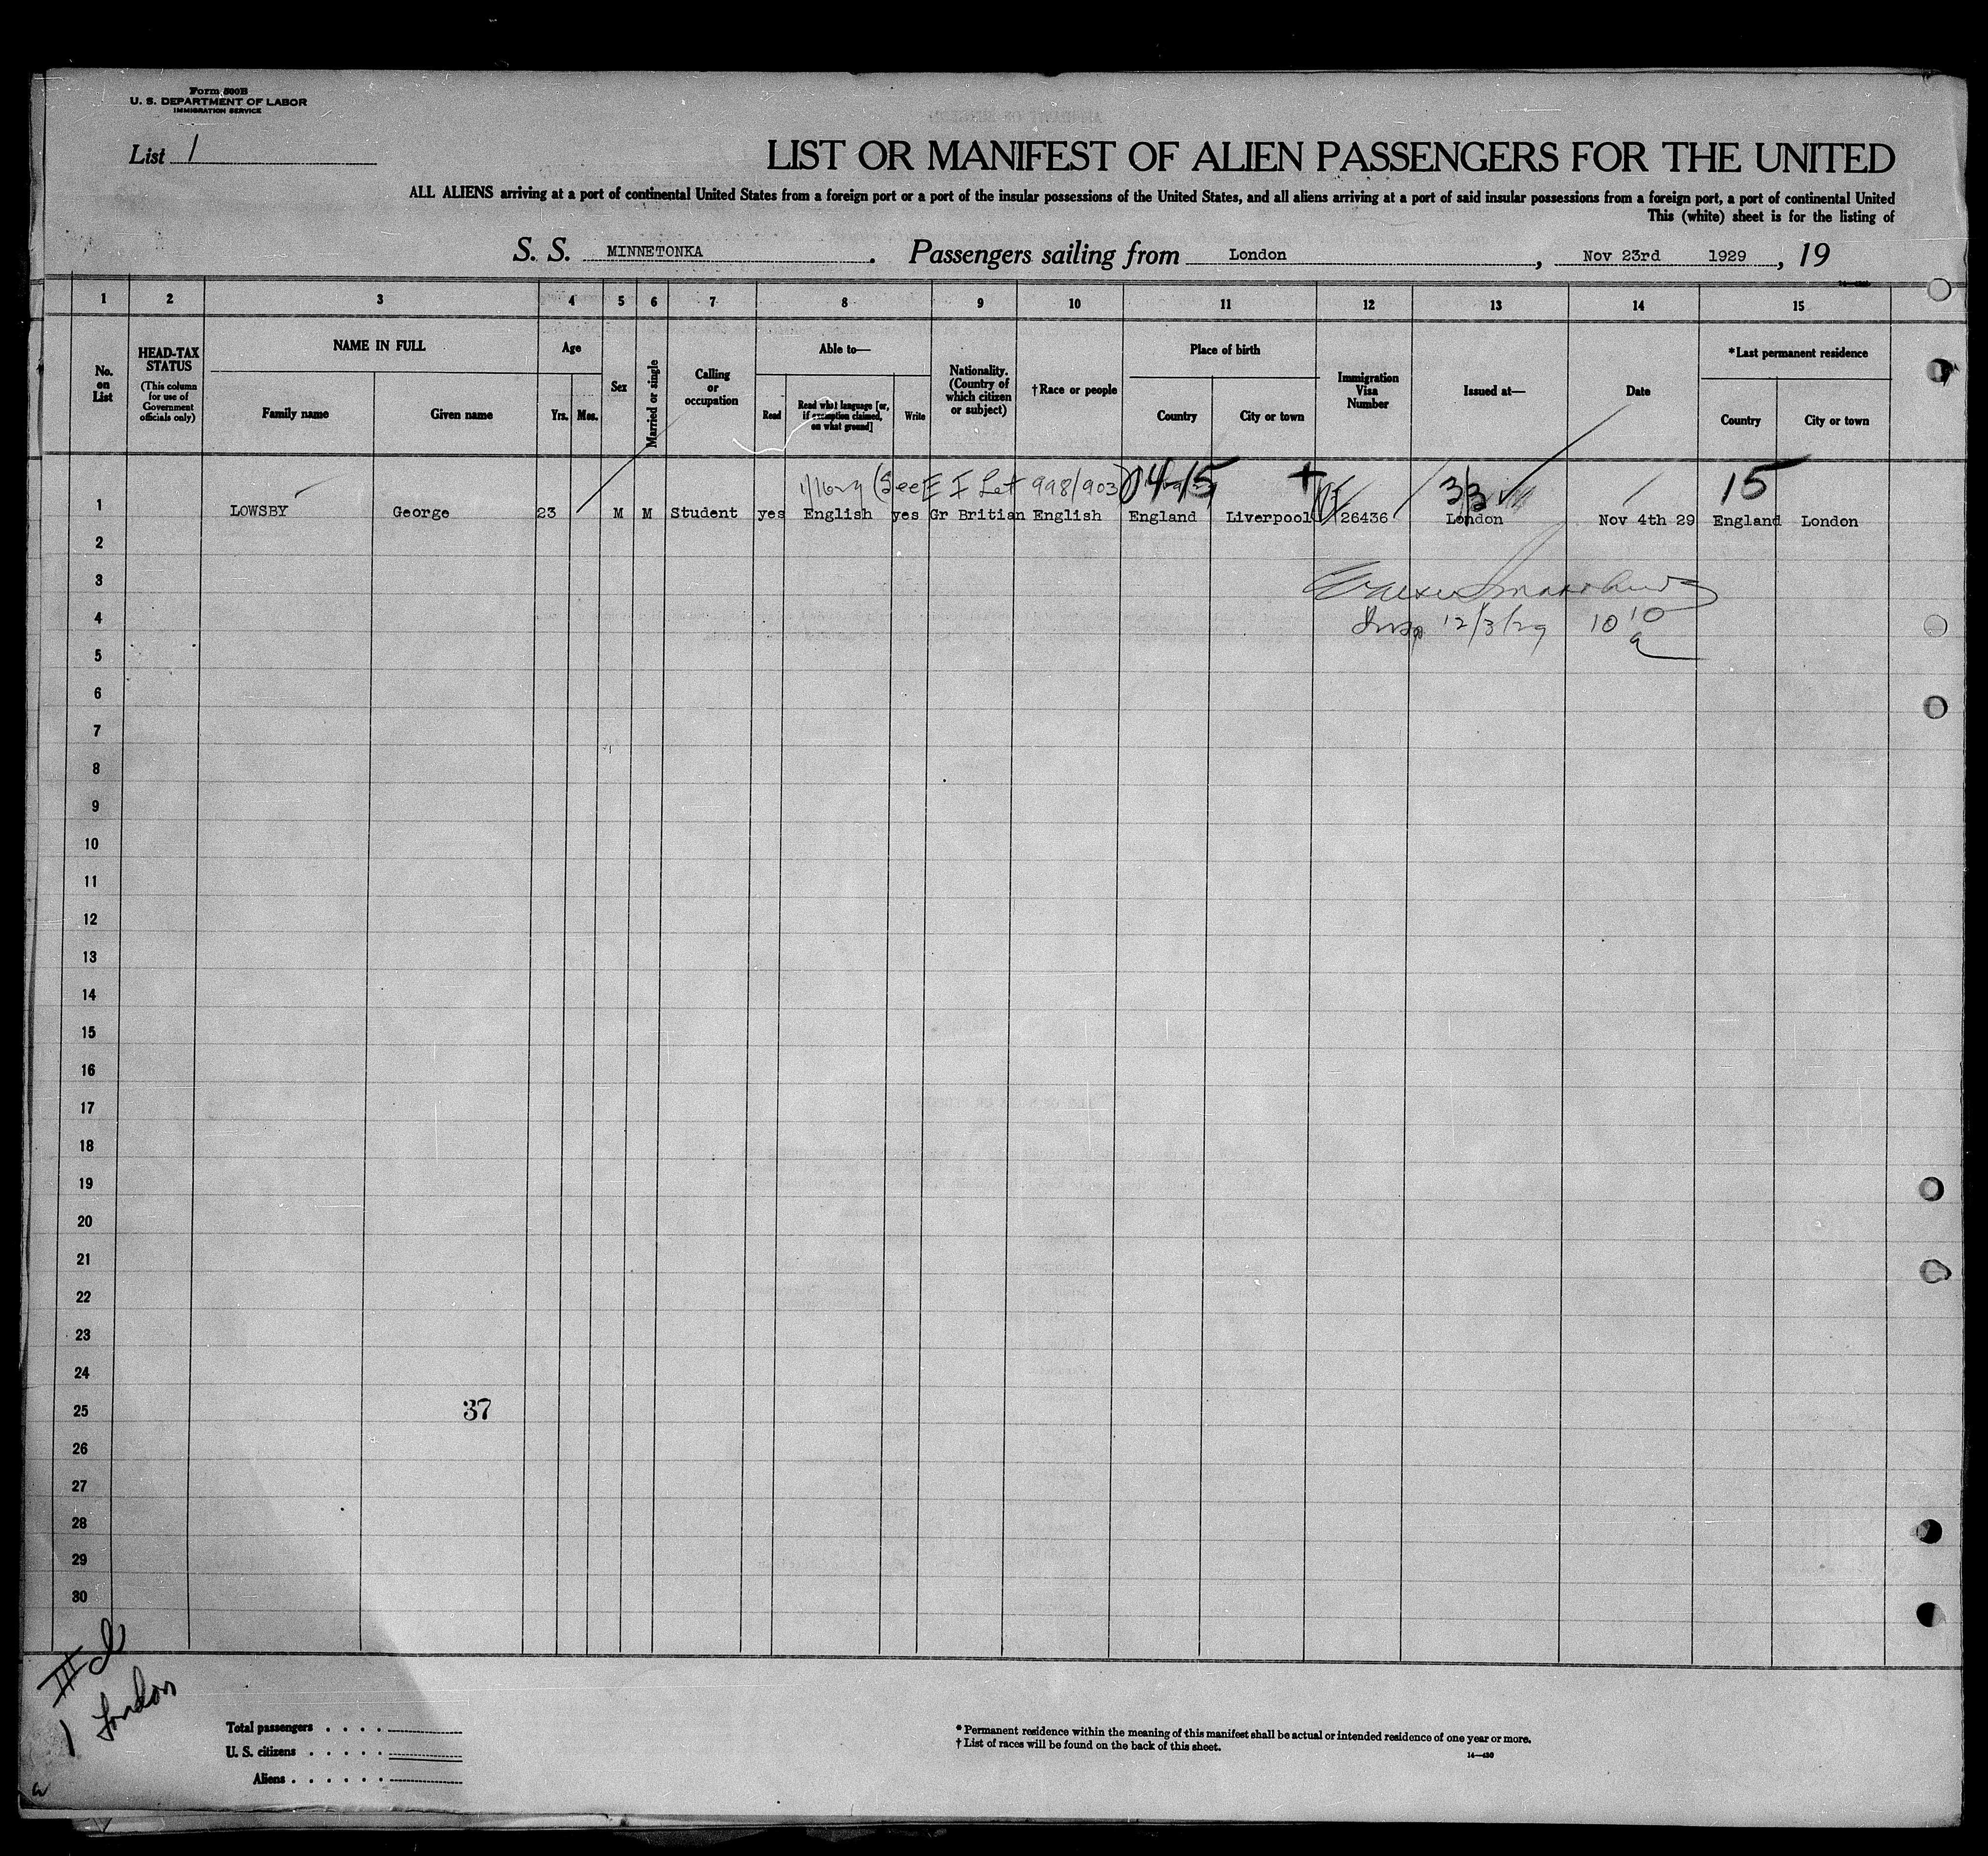 Form 500B
U. S. DEPARTMENT OF LABOR
IMMIGRATION SERVICE
List 1
LIST OR MANIFEST OF ALIEN PASSENGERS FOR THE UNITED
ALL ALIENS arriving at a port of continental United States from a foreign port or a port of the insular possessions of the United States, and all aliens arriving at a port of said insular possessions from a foreign port, a port of continental United
This (white) sheet is for the listing of
S. S. MINNETONKA. Passengers sailing from London, Nov 23rd 1929, 19
1 2 3 4 5 6 7 8 9 10 11 12 13 14 15
No. on List
HEAD-TAX STATUS
(This column for use of Government officials only)
NAME IN FULL
Family name Given name
Age
Yrs. Mos.
Sex
Married or single
Calling or occupation
Able to—
Read Read what language [or, if exemption claimed, on what ground] Write
Nationality. (Country of which citizen or subject)
†Race or people
Place of birth
Country City or town
Immigration Visa Number
Issued at—
Date
*Last permanent residence
Country City or town
(See Let 998/903) 15 + 33 15
1 LOWSBY George 23 M M Student yes English yes Gr Britian English England Liverpool 26436 London Nov 4th 29 England London
2
3
4
Insp 12/3/29 10 10 a
5
6
7
8
9
10
11
12
13
14
15
16
17
18
19
20
21
22
23
24
25
37
26
27
28
29
30
1 London
Total passengers . . . .
U. S. citizens . . . . .
Aliens . . . . . .
* Permanent residence within the meaning of this manifest shall be actual or intended residence of one year or more.
† List of races will be found on the back of this sheet.
14—430